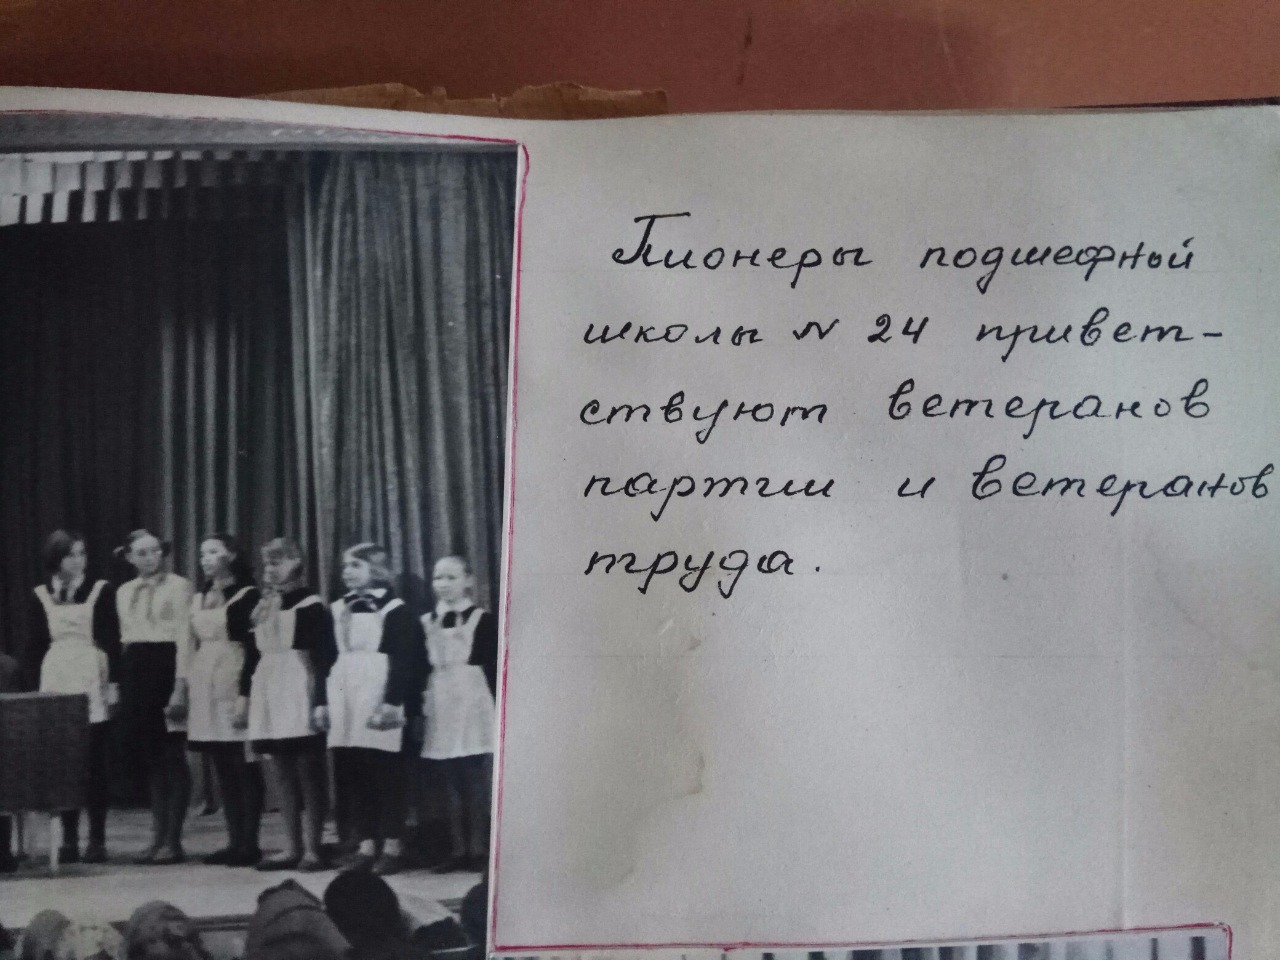 Пионеры подшефной
школы N 24 привет-
ствуют ветеранов
партии и ветеранов
труда.